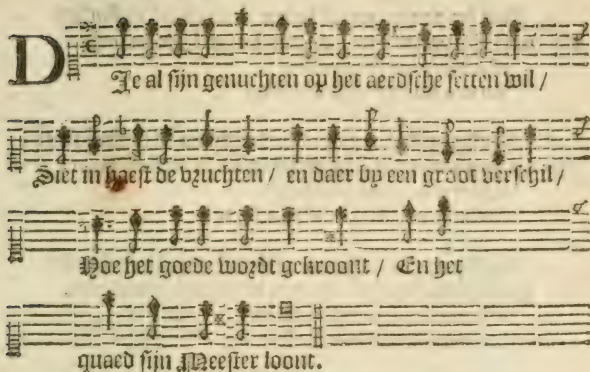 DIe al sijn genuchten op het aerdsche setten wil /
Siet in haest de vruchten / en daer by een groot verschil /
Hoe het goede wordt gekroont / En het
quaed sijn Meester loont.